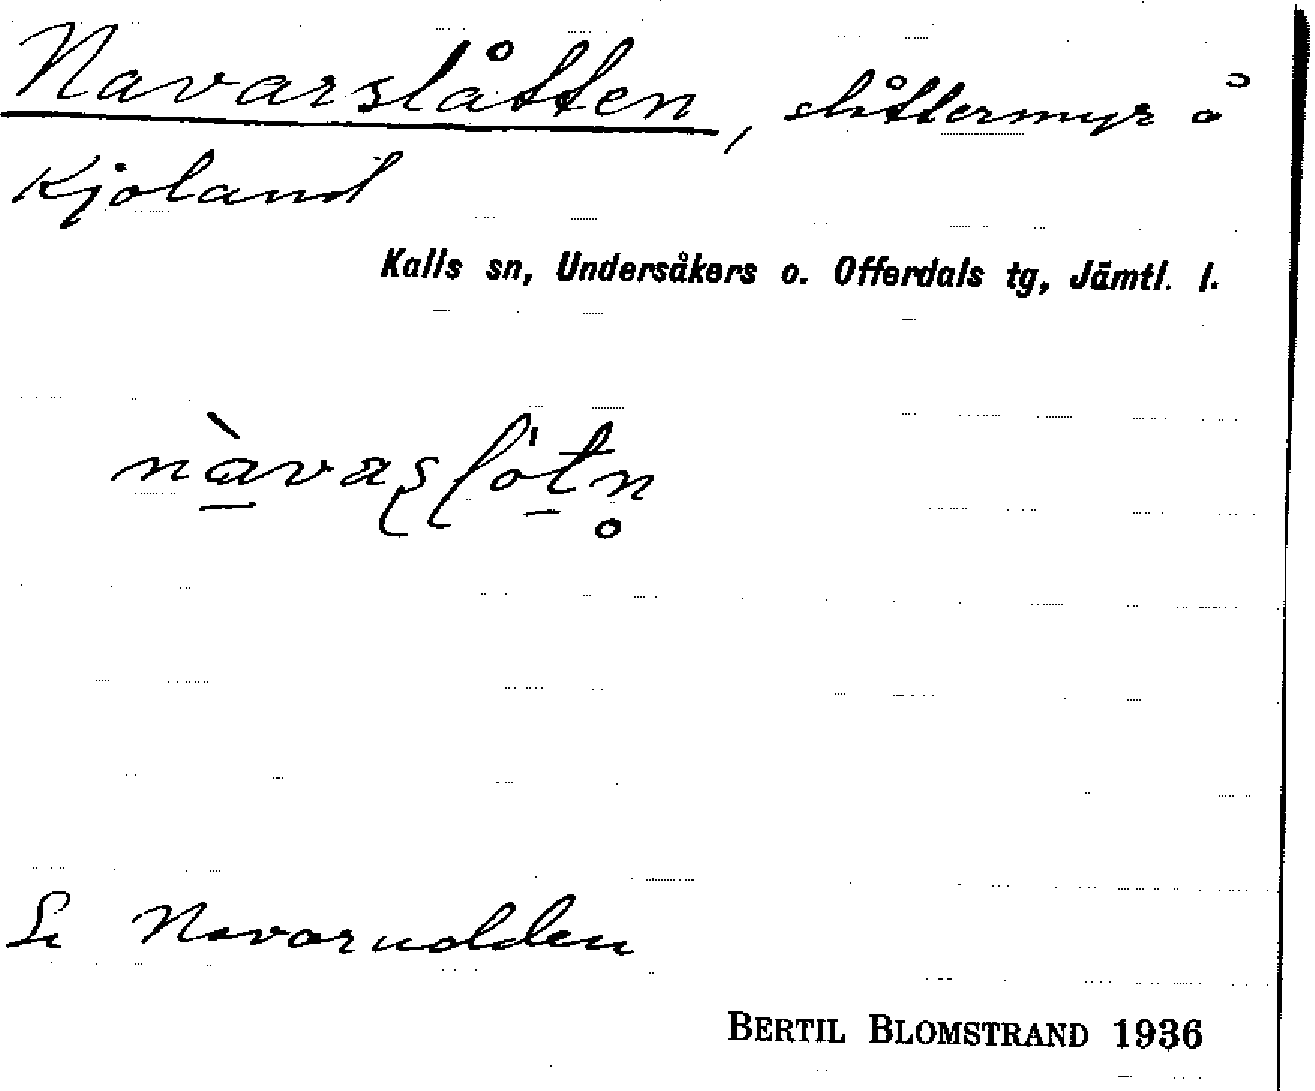 Navarslåtten, slåttermyr å
Kjoland
Kalls sn, Undersåkers o. Offerdals tg, Jämtl. l.
nàvaʂʃòtn̥
Se Navarnolden
BERTIL BLOMSTRAND 1936